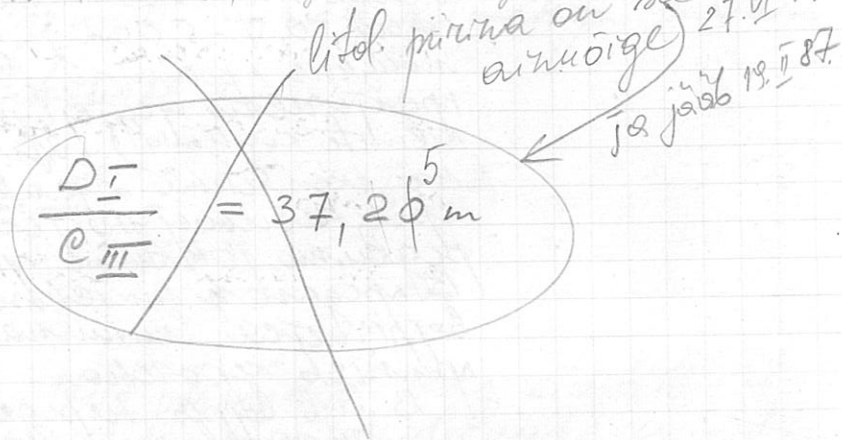 litol. piirina on 27.VI
ainuõige
ja jääb 19.II 87.
D I
C III
= 37,20 5 m